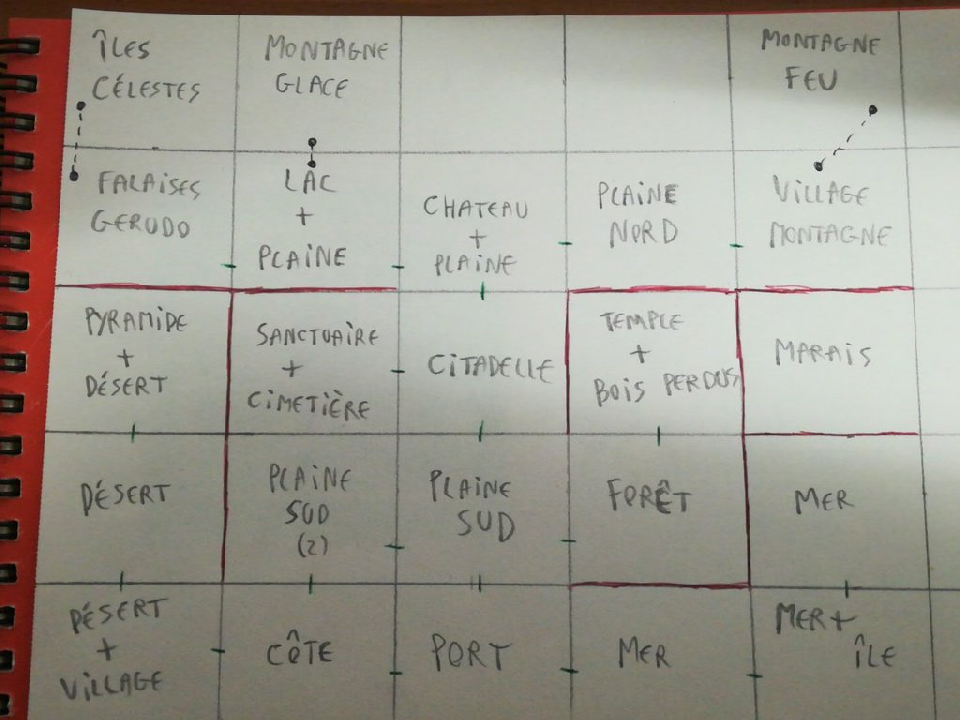 ÎLES
CÉLESTES
MONTAGNE
GLACE
MONTAGNE
FEU
FALAISES
GERUDO
LAC
+
PLAINE
CHATEAU
+
PLAINE
PLAINE
NORD
VILLAGE
MONTAGNE
PYRAMIDE
+
DÉSERT
SANCTUAIRE
+
CIMETIÈRE
CITADELLE
TEMPLE
+
BOIS PERDUS
MARAIS
DÉSERT
PLAINE
SUD
(2)
PLAINE
SUD
FORÊT
MER
DÉSERT
+
VILLAGE
CÔTE
PORT
MER
MER +
ÎLE